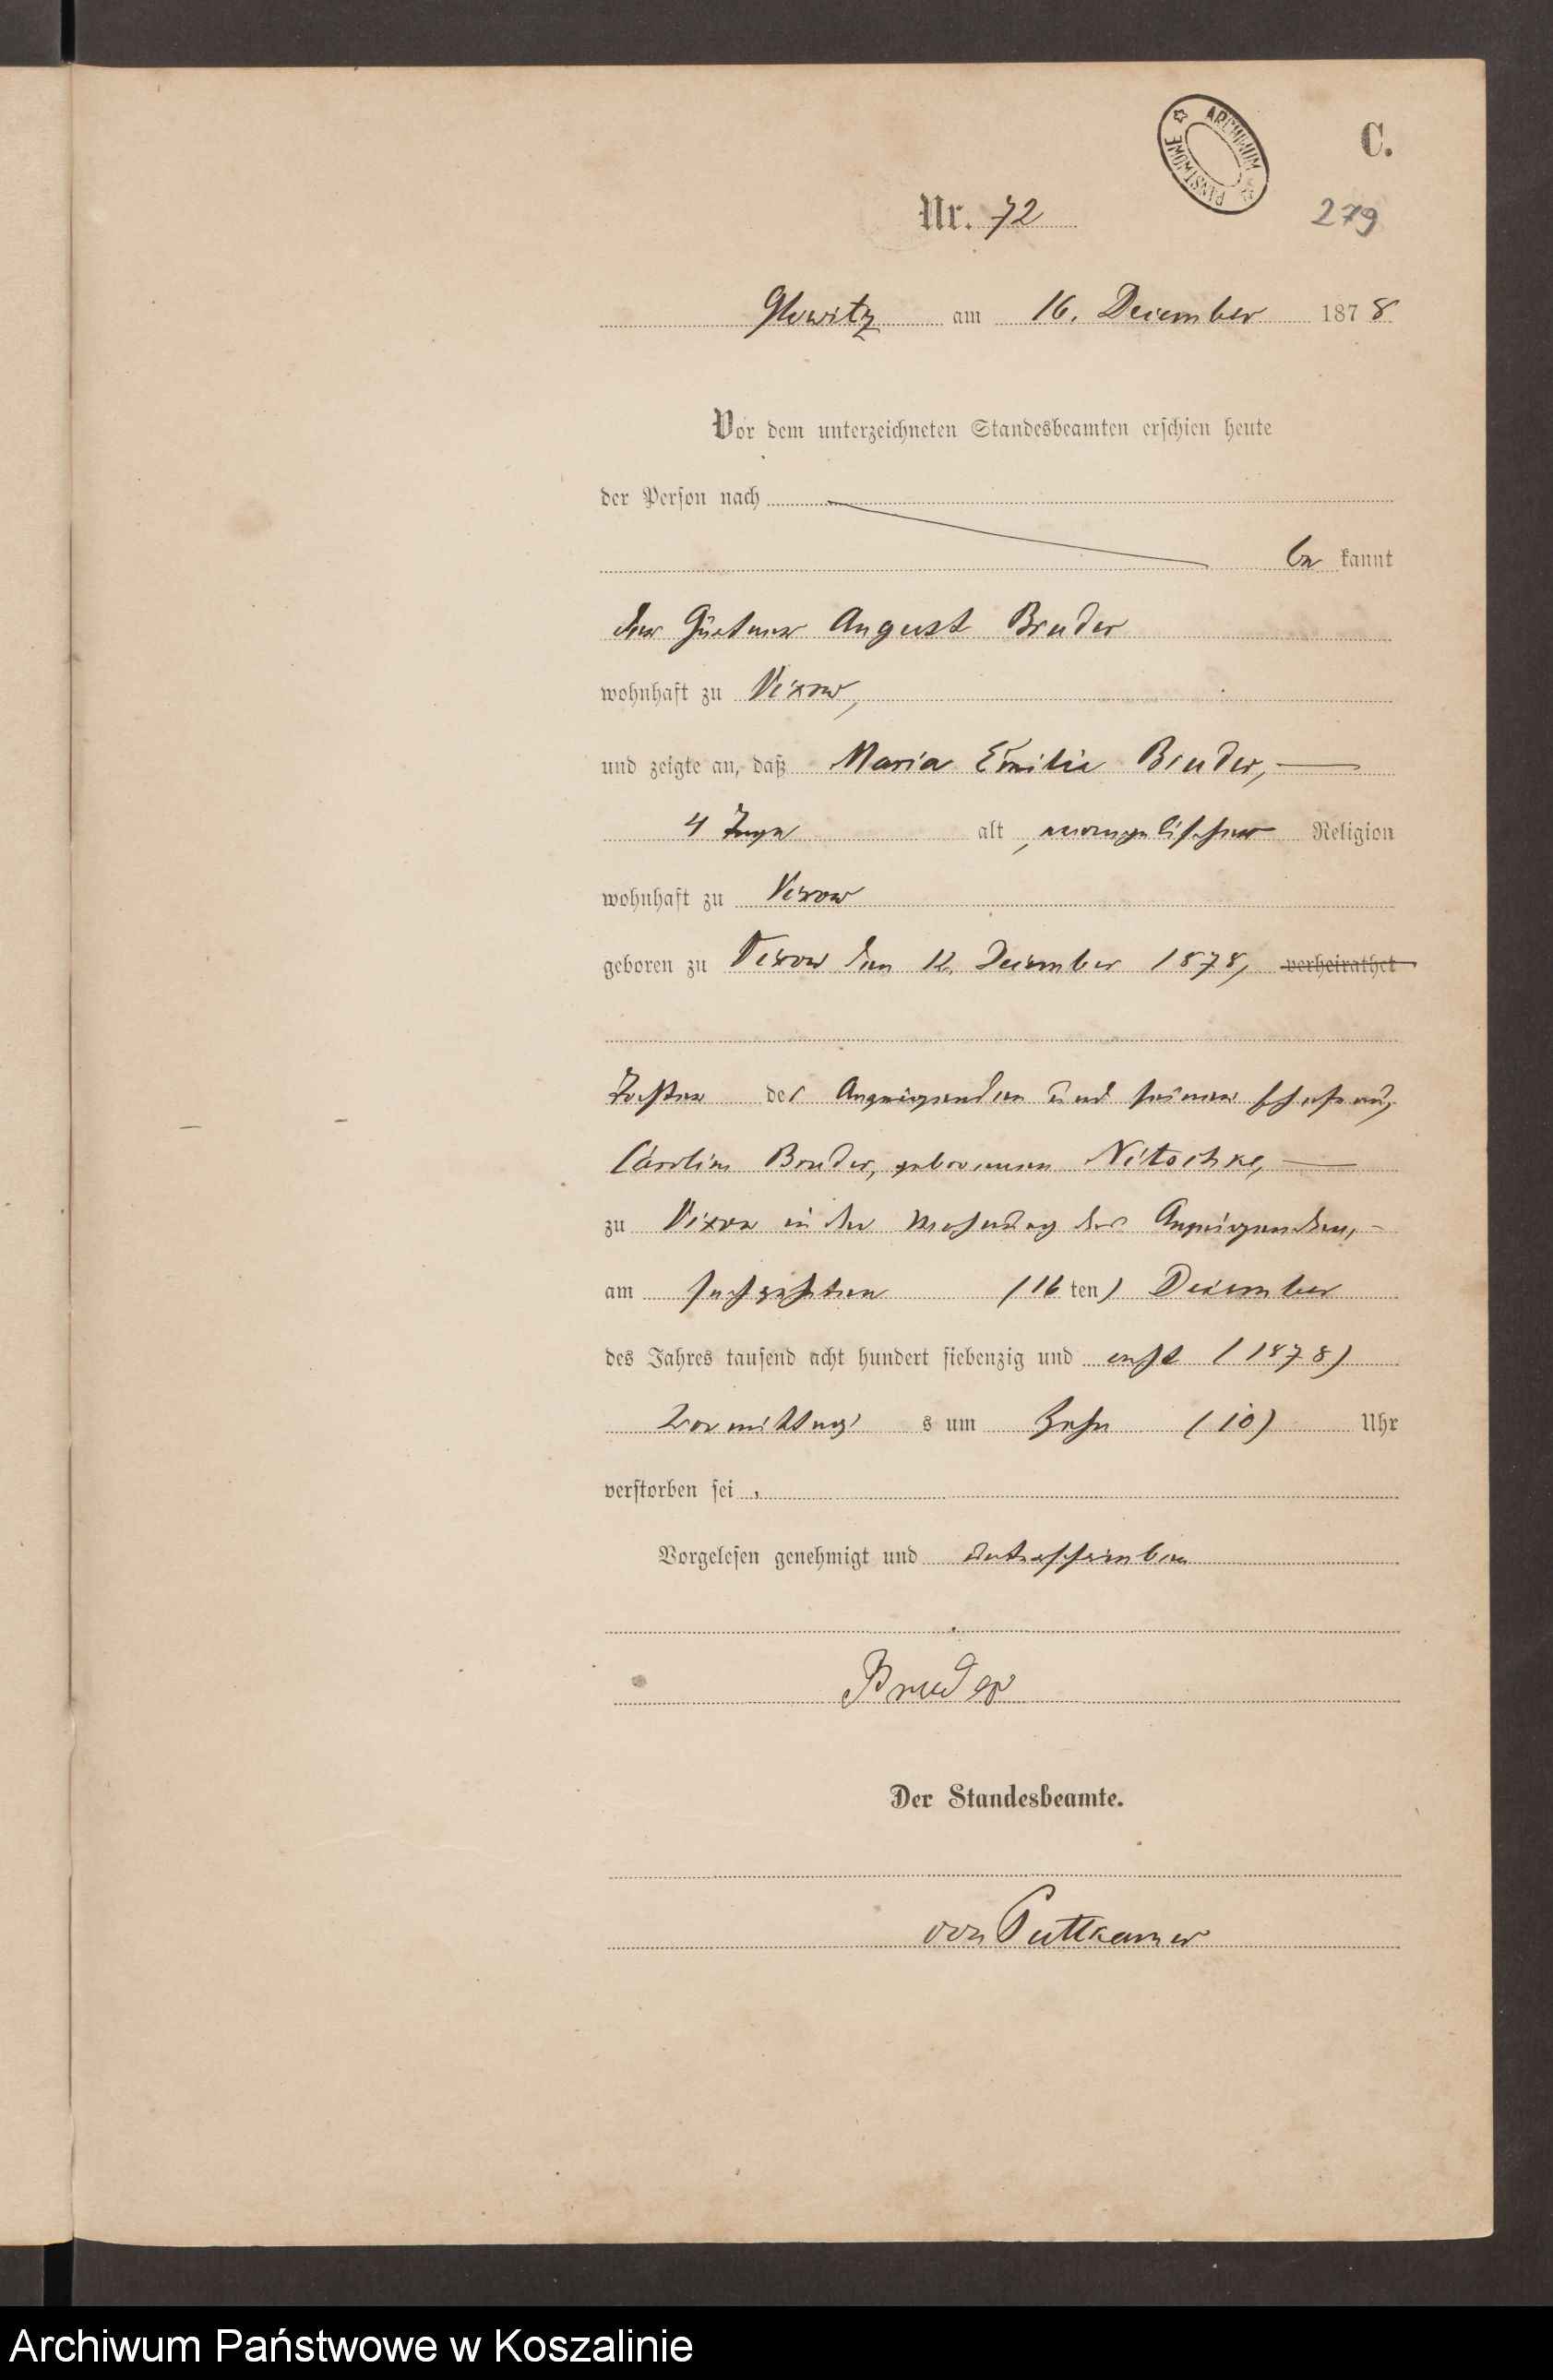 C.
ARCHIWUM PAŃSTWOWE
Nr. 72
279
Glowitz am 16. December 1878
Vor dem unterzeichneten Standesbeamten erschien heute
der Person nach
be kannt
der Gärtner August Bruder
wohnhaft zu Vixow,
und zeigte an, daß Maria Emilie Bruder,
4 Tage alt, evangelischer Religion
wohnhaft zu Vixow
geboren zu Vixow den 12. December 1878, verheirathet
Tochter des Anzeigenden und seiner Ehefrau,
Caroline Bruder, geborenen Nitschke,
zu Vixow in der Wohnung des Anzeigenden,
am sechzehnten (16 ten) December
des Jahres tausend acht hundert siebenzig und acht (1878)
Vormittag s um Zehn (10) Uhr
verstorben sei.
Vorgelesen genehmigt und unterschrieben
Bruder
Der Standesbeamte.
von Puttkamer
Archiwum Państwowe w Koszalinie